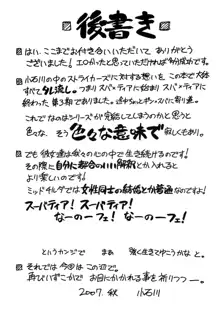 後書き
はい、ここまでお付き合いいただいて ありがとう
ございました! エロかったと思っていただければ
小石川の中のストライカーズに対する想いを、この本で大体
すべて出し尽した。つまりスバ×ティアに始まり スバ×ティアに
終わった 第3期でありました。
これで なのはシリーズが完結してしまうのかと思うと
色々な、そう 色々な意味で 寂しくもあり。
でも 彼女達は我々の心の中で生き続けるのです!
その際に 自分に都合のいい解釈とか入れると
より楽しいのです!
ミッドチルダでは 女性同士の結婚とか普通なのですよ!
スーパティア! スーパティア!
なーのーフェ! なーのーフェ!
というカンジで まぁ 強く生きてゆこうかな と。
それでは 今回は この辺で。
再びいずこかで お目にかかれる事を祈りつつ ―。
2007. 秋 小石川